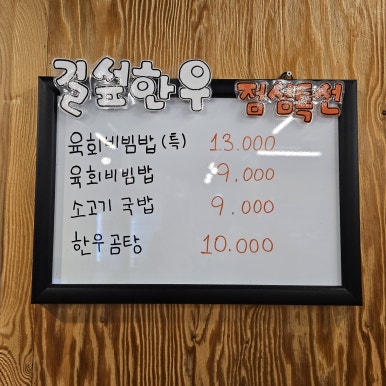 길섶한우 점심특선
육회비빔밥(특) 13.000
육회비빔밥 9.000
소고기 국밥 9.000
한우곰탕 10.000